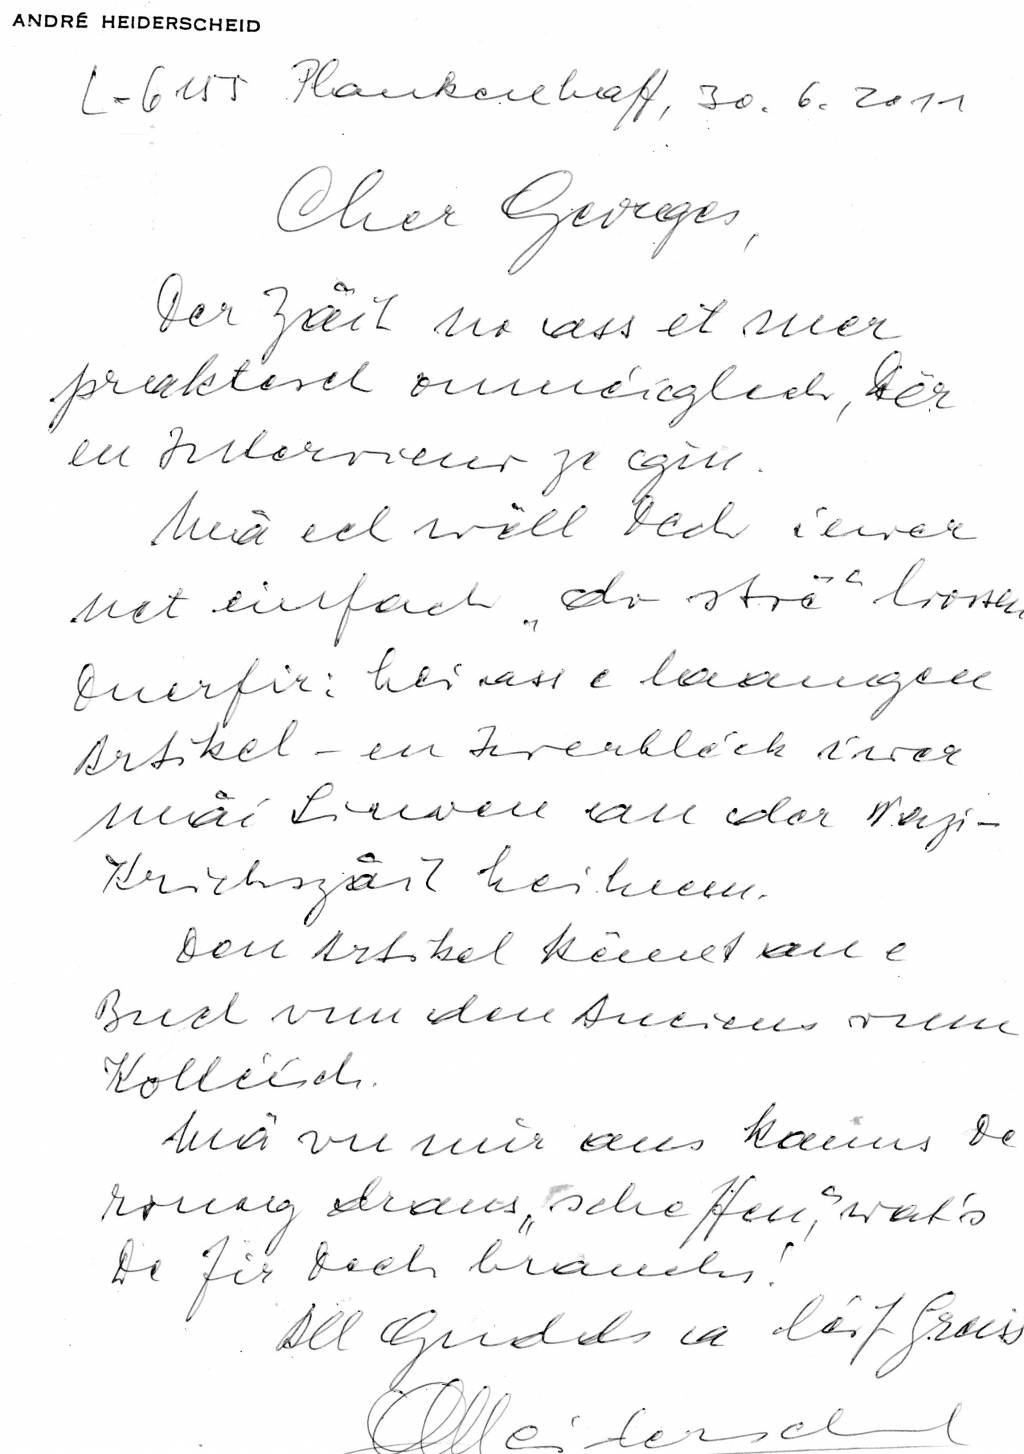 ANDRÉ HEIDERSCHEID
L-6155 Plankenhaff, 30. 6. 2011
Cher Georges,
Der Zäit no ass et mer
praktesch onméiglech, Dër
en Interview ze ginn.
Mä ech wëll Dech iewer
net einfach „do stoë“ loossen
Duerfir: hei ass e laangen
Artikel – en Iwerbléck iwer
mäi Liewen an der Nazi-
Krichszäit heiheem.
Den Artikel kënnt an e
Buch vun den Anciens vum
Kolléisch.
Mä vu mir aus kanns De
roueg draus „scheffen“, wat's
De fir Dech brauchs!
All Gudds a léif Greiss
A Heiderscheid